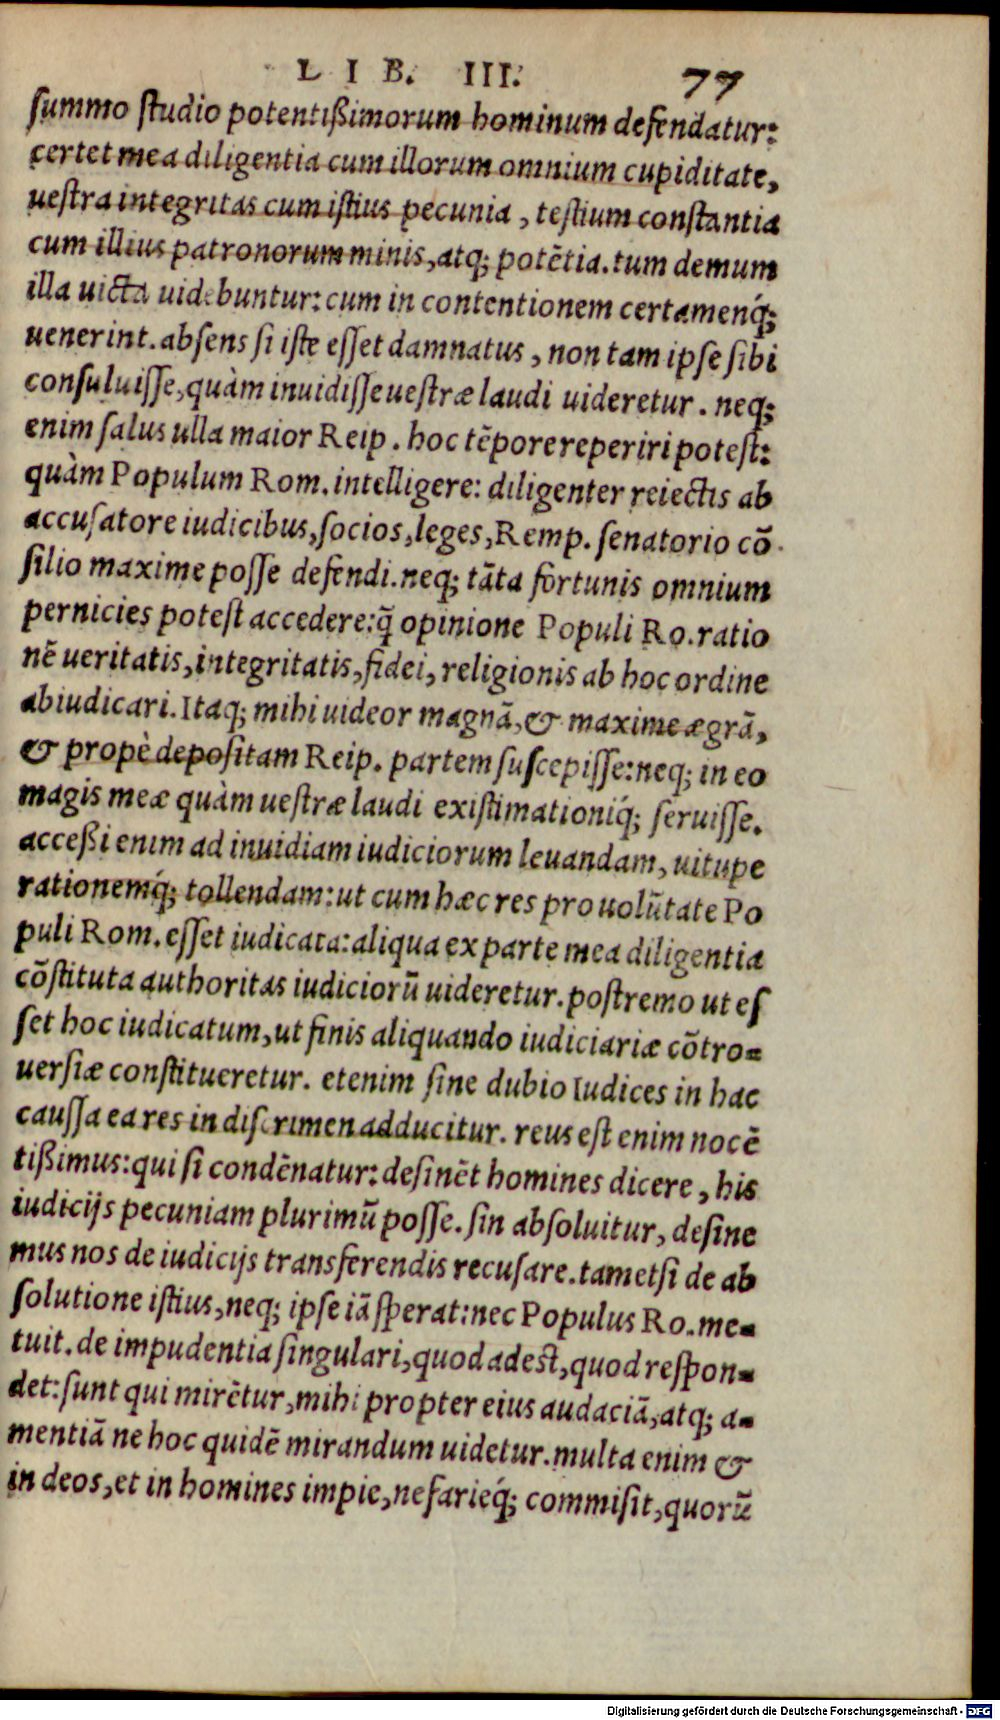 LIB. III. 77
ſummo ſtudio potentißimorum hominum defendatur:
certet mea diligentia cum illorum omnium cupiditate,
ueſtra integritas cum iſtius pecunia, teſtium conſtantia
cum illius patronorum minis, atq; potētia. tum demum
illa uicta uidebuntur: cum in contentionem certamenq́;
uenerint. abſens ſi iſte eſſet damnatus, non tam ipſe ſibi
conſuluiſſe, quàm inuidiſſe ueſtræ laudi uideretur. neq;
enim ſalus ulla maior Reip. hoc tēpore reperiri poteſt:
quàm Populum Rom. intelligere: diligenter reiectis ab
accuſatore iudicibus, ſocios, leges, Remp. ſenatorio cō
ſilio maxime poſſe defendi. neq; tāta fortunis omnium
pernicies poteſt accedere: q̄ opinione Populi Ro. ratio
nē ueritatis, integritatis, fidei, religionis ab hoc ordine
abiudicari. Itaq; mihi uideor magnā, & maxime ægrā,
& propè depoſitam Reip. partem ſuſcepiſſe: neq; in eo
magis meæ quàm ueſtræ laudi exiſtimationiq́; ſeruiſſe.
acceßi enim ad inuidiam iudiciorum leuandam, uitupe
rationemq́; tollendam: ut cum hæc res pro uolūtate Po
puli Rom. eſſet iudicata: aliqua ex parte mea diligentia
cōſtituta authoritas iudiciorū uideretur. poſtremo ut eſ
ſet hoc iudicatum, ut finis aliquando iudiciariæ cōtro=
uerſiæ conſtitueretur. etenim ſine dubio Iudices in hac
cauſſa ea res in diſcrimen adducitur. reus eſt enim nocē
tißimus: qui ſi condēnatur: deſinēt homines dicere, his
iudicijs pecuniam plurimū poſſe. ſin abſoluitur, deſine
mus nos de iudicijs transferendis recuſare. tametſi de ab
ſolutione iſtius, neq; ipſe iā ſperat: nec Populus Ro. me=
tuit. de impudentia ſingulari, quod adeſt, quod reſpon=
det: ſunt qui mirētur, mihi propter eius audaciā, atq; a=
mentiā ne hoc quidē mirandum uidetur. multa enim &
in deos, et in homines impie, nefarieq́; commiſit, quorū
Digitalisierung gefördert durch die Deutsche Forschungsgemeinschaft - DFG